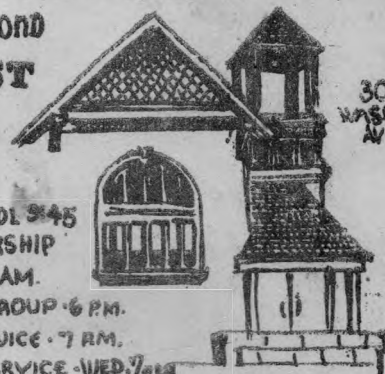 OND
ST
30
WASH
AV
OL 9:45
RSHIP
AM.
ROUP · 6 P.M.
VICE · 7 P.M.
RVICE · WED. 7